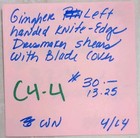 Gingher Left
handed Knife-Edge
Dressmaker shears
with Blade cover
C4-4
* 30.—
13.25
WN 4/14